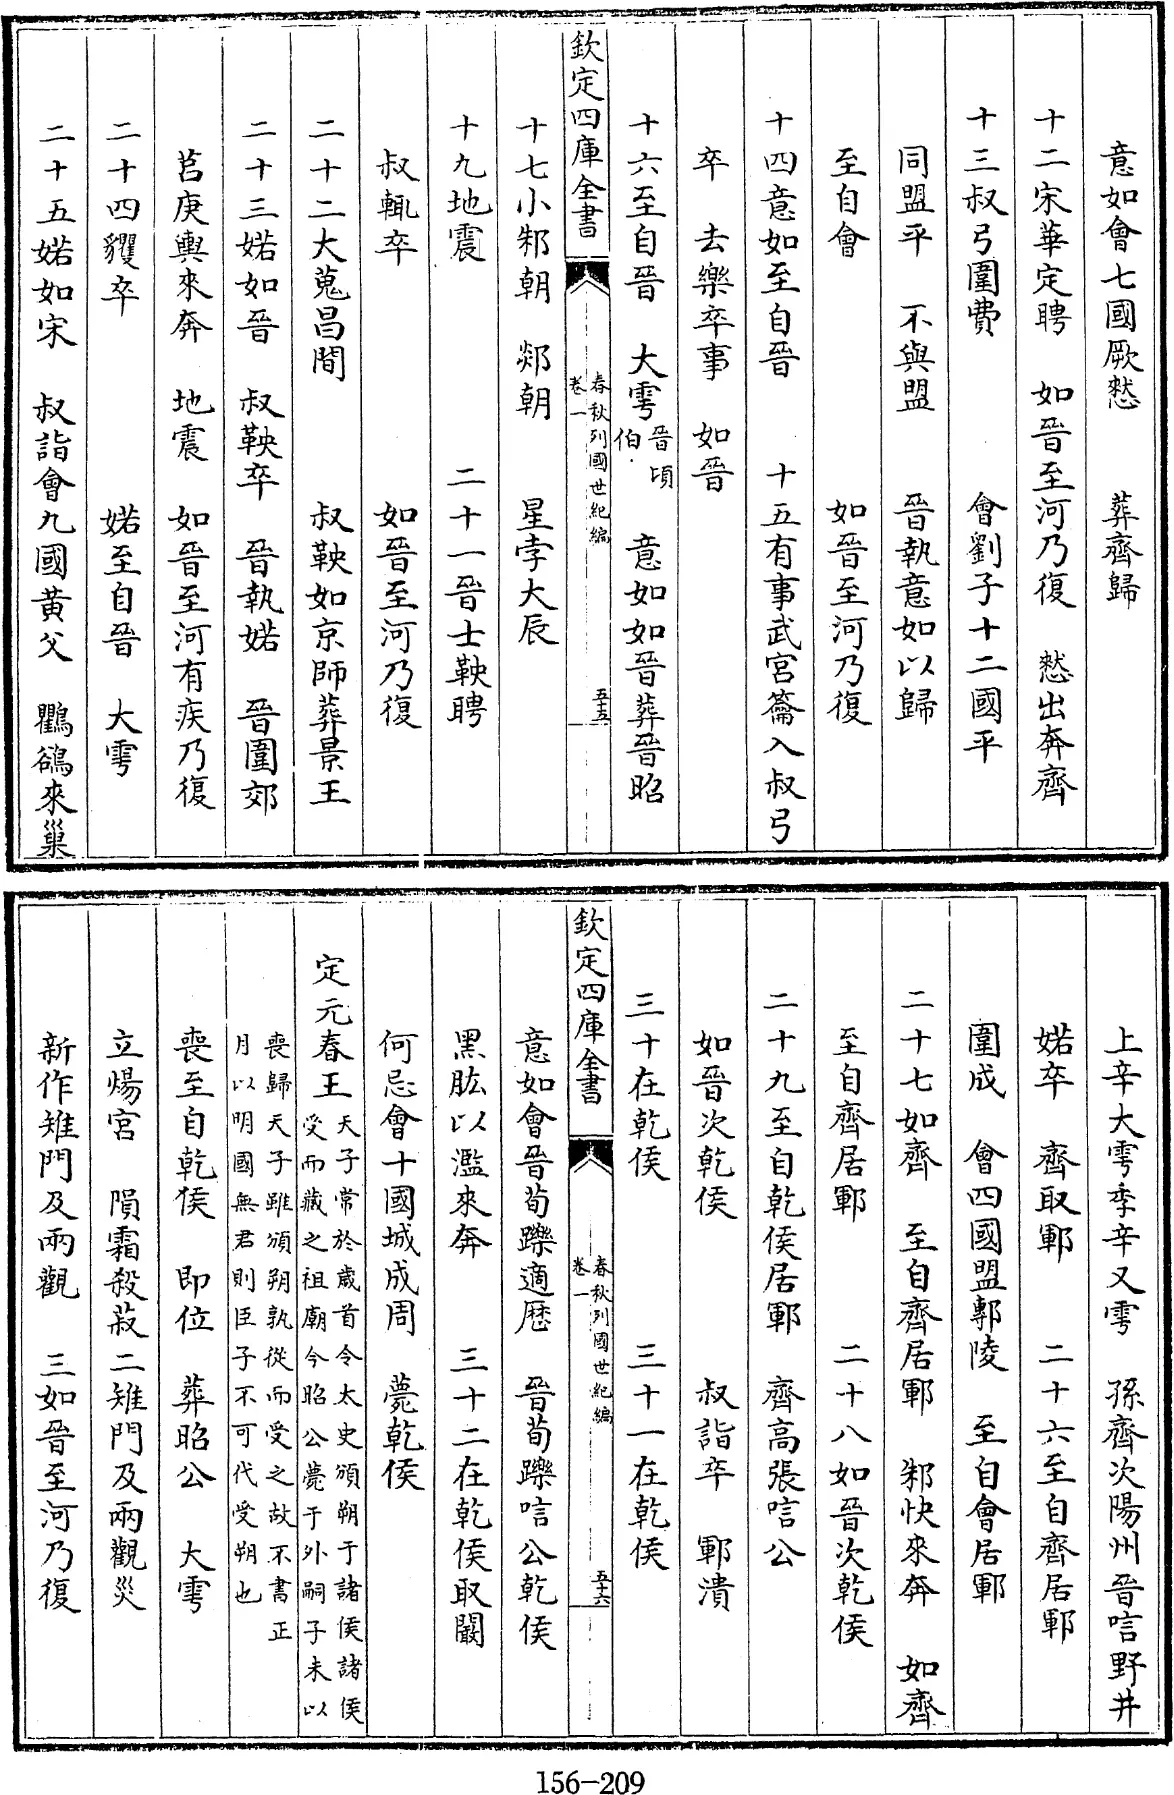 意如會七國厥憖　葬齊歸
十二宋華定聘　如晉至河乃復　憖出奔齊
十三叔弓圍費　會劉子十二國平
同盟平　不與盟　晉執意如以歸
至自會　如晉至河乃復
十四意如至自晉　十五有事武宮籥入叔弓
卒　去樂卒事　如晉
十六至自晉　大雩晉頃伯　意如如晉葬晉昭
欽定四庫全書　春秋列國世紀編卷一　五十五
十七小邾朝　郯朝　星孛大辰
十九地震　二十一晉士鞅聘
叔輒卒　如晉至河乃復
二十二大蒐昌間　叔鞅如京師葬景王
二十三婼如晉　叔鞅卒　晉執婼　晉圍郊
莒庚輿來奔　地震　如晉至河有疾乃復
二十四貜卒　婼至自晉　大雩
二十五婼如宋　叔詣會九國黃父　鸜鵒來巢
上辛大雩季辛又雩　孫齊次陽州晉唁野井
婼卒　齊取鄆　二十六至自齊居鄆
圍成　會四國盟鄟陵　至自會居鄆
二十七如齊　至自齊居鄆　邾快來奔　如齊
至自齊居鄆　二十八如晉次乾侯
二十九至自乾侯居鄆　齊高張唁公
如晉次乾侯　叔詣卒　鄆潰
三十在乾侯　三十一在乾侯
欽定四庫全書　春秋列國世紀編卷一　五十六
意如會晉荀躒適歷　晉荀躒唁公乾侯
黑肱以濫來奔　三十二在乾侯取闞
何忌會十國城成周　薨乾侯
定元春王天子常於歲首令太史頒朔于諸侯諸侯受而藏之祖廟今昭公薨于外嗣子未以
喪歸天子雖頒朔孰從而受之故不書正月以明國無君則臣子不可代受朔也
喪至自乾侯　即位　葬昭公　大雩
立煬宮　隕霜殺菽　二雉門及兩觀災
新作雉門及兩觀　三如晉至河乃復
156-209